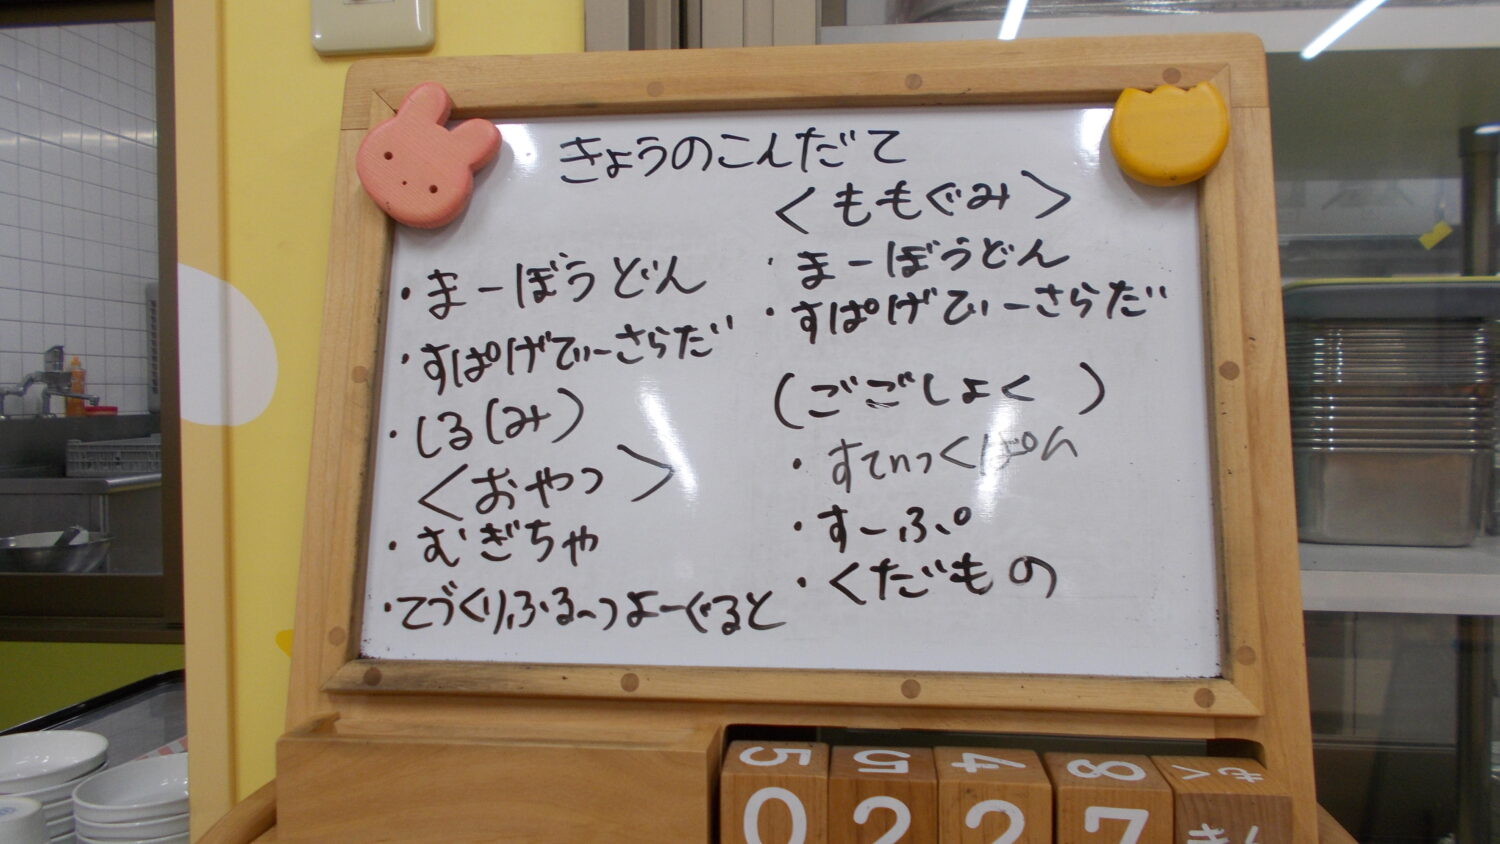 きょうのこんだて
・まーぼうどん
・すぱげてぃーさらだ
・しる(みみ)
＜おやつ＞
・むぎちゃ
・てづくりふるーつよーぐると
＜ももぐみ＞
・まーぼうどん
・すぱげてぃーさらだ
(ごごしょく)
・すてぃっくぱん
・すーぷ
・くだもの
5 5 4 8 もく
0 2 2 7 きん